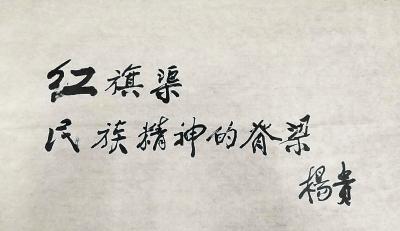 红旗渠
民族精神的脊梁
楊贵